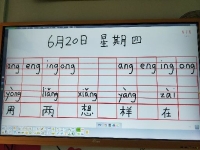 6月20日 星期四
ang eng ing ong ang eng ing ong
yòng liǎng xiǎng yàng zài
用 两 想 样 在